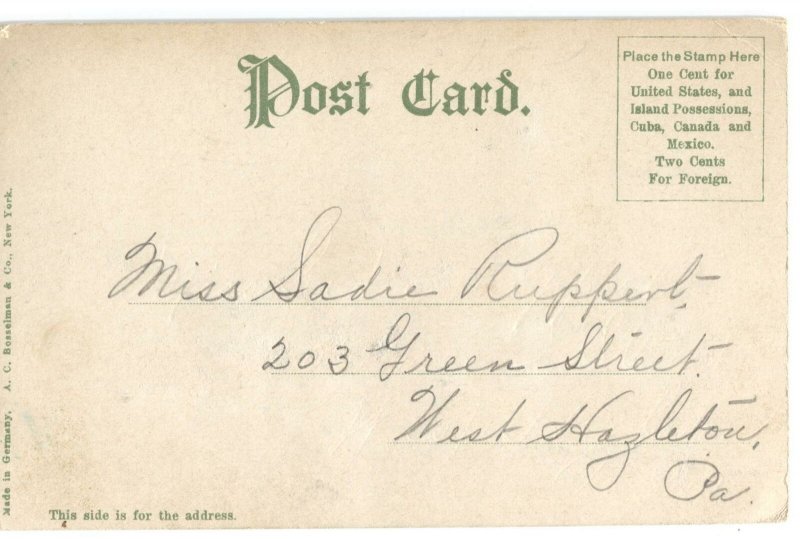 Post Card.
Place the Stamp Here
One Cent for
United States, and
Island Possessions,
Cuba, Canada and
Mexico.
Two Cents
For Foreign.
Miss Sadie Ruppert,
203 Green Street.
West Hazleton,
Pa.
Made in Germany. A. C. Bosselman & Co., New York.
This side is for the address.